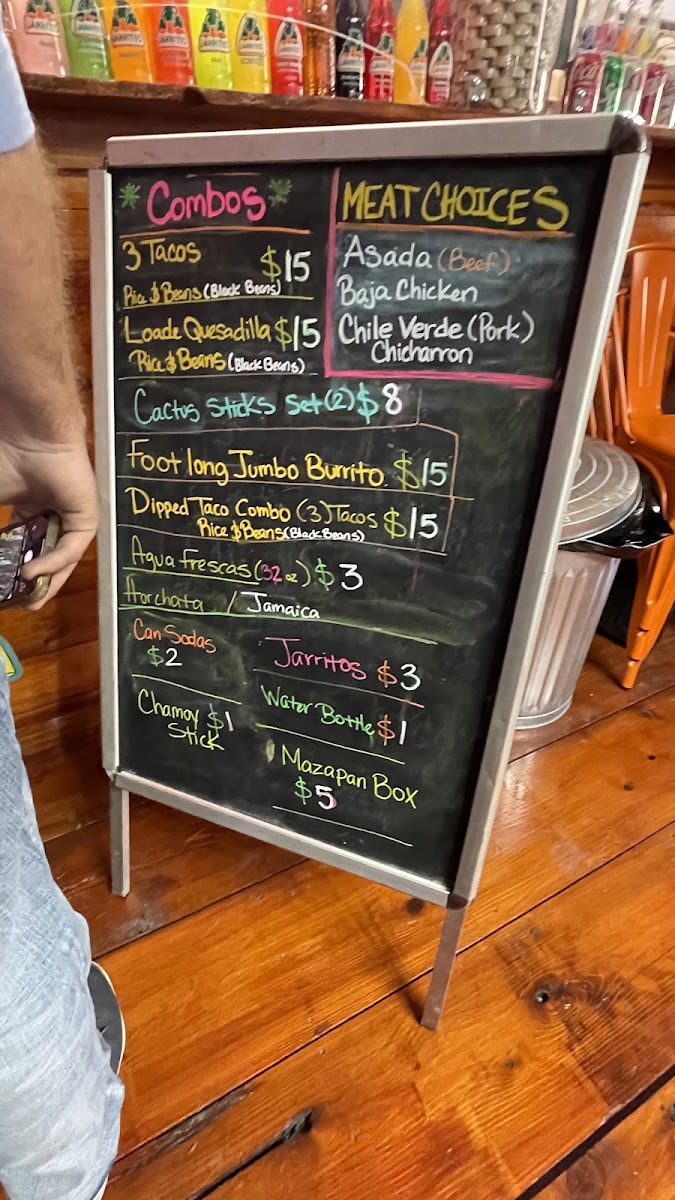 JARRITOS
JARRITOS
JARRITOS
JARRITOS
JARRITOS
JARRITOS
Combos
3 Tacos $15
Rice $ Beans (Black Beans)
Loade Quesadilla $15
Rice $ Beans (Black Beans)
MEAT CHOICES
Asada (Beef)
Baja Chicken
Chile Verde (Pork)
Chicharron
Cactus Sticks Set (2) $8
Foot long Jumbo Burrito. $15
Dipped Taco Combo (3) Tacos $15
Rice $ Beans (Black Beans)
Agua frescas (32 oz) $3
Horchata / Jamaica
Can Sodas
$2
Jarritos $3
Chamoy $1
Stick
Water Bottle $1
Mazapan Box
$5